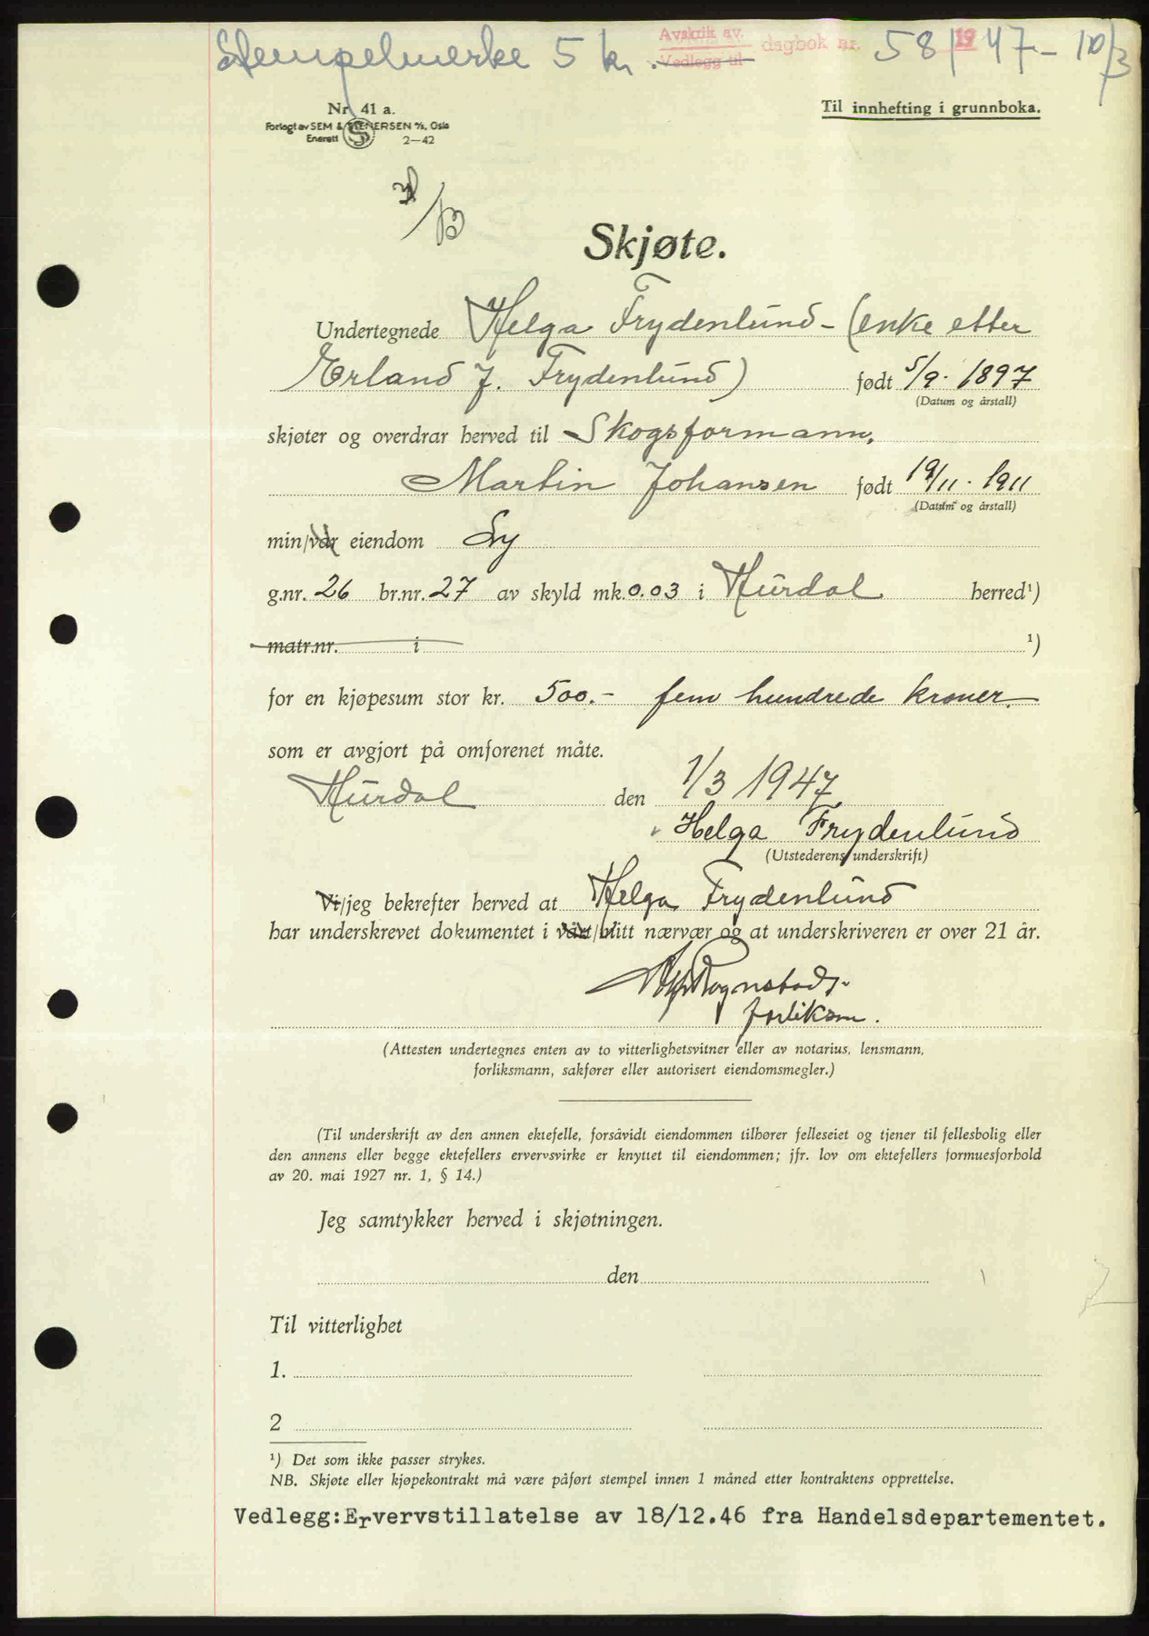 Stempelmerke 5 kr.
Avskrik av.
Vedlegg til
dagbok nr. 58/1947 - 10/3
Nr. 41 a.
Forlagt av SEM & STENERSEN A/S, Oslo
Enerett 2—42
Til innhefting i grunnboka.
Skjøte.
Undertegnede Helga Frydenlund - (enke etter
Erland J. Frydenlund) født 5/9. 1897
(Datum og årstall)
skjøter og overdrar herved til Skogsformann,
Martin Johansen født 19/11. 1911
(Datum og årstall)
min/vår eiendom Ly
g.nr. 26 br.nr. 27 av skyld mk. 0.03 i Hurdal herred¹)
matr.nr. i ¹)
for en kjøpesum stor kr. 500.- fem hundrede kroner.
som er avgjort på omforenet måte.
Hurdal den 1/3 1947
Helga Frydenlund
(Utstederens underskrift)
Vi/jeg bekrefter herved at Helga Frydenlund
har underskrevet dokumentet i vårt/mitt nærvær og at underskriveren er over 21 år.
Rognstad.
forliksm.
(Attesten undertegnes enten av to vitterlighetsvitner eller av notarius, lensmann,
forliksmann, sakfører eller autorisert eiendomsmegler.)
(Til underskrift av den annen ektefelle, forsåvidt eiendommen tilhører felleseiet og tjener til fellesbolig eller
den annens eller begge ektefellers ervervsvirke er knyttet til eiendommen; jfr. lov om ektefellers formuesforhold
av 20. mai 1927 nr. 1, § 14.)
Jeg samtykker herved i skjøtningen.
den
Til vitterlighet
1.
2
¹) Det som ikke passer strykes.
NB. Skjøte eller kjøpekontrakt må være påført stempel innen 1 måned etter kontraktens opprettelse.
Vedlegg:Ervervstillatelse av 18/12.46 fra Handelsdepartementet.